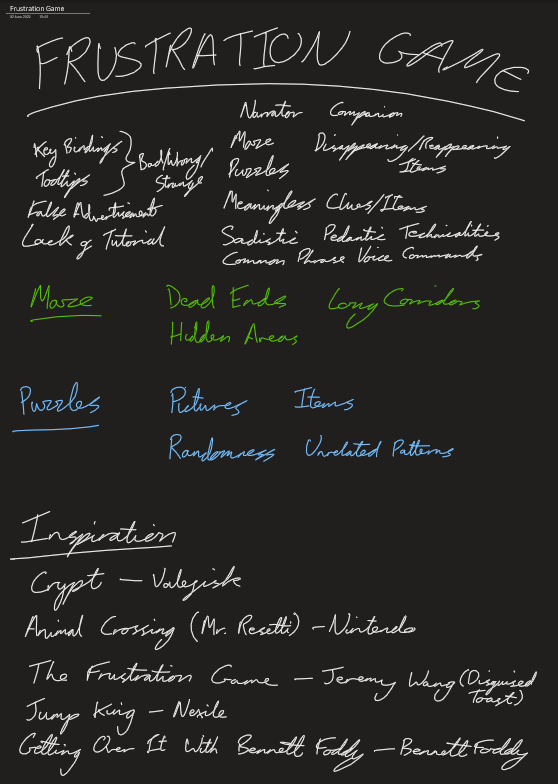 Frustration Game
02 June 2022 15:41
FRUSTRATION GAME
Narrator Companion
Key Bindings
Tooltips
Bad/Wrong/
Strange
False Advertisement
Lack of Tutorial
Maze Disappearing/Reappearing
Items
Puzzles
Meaningless Clues/Items
Sadistic Pedantic Technicalities
Common Phrase Voice Commands
Maze Dead Ends Long Corridors
Hidden Areas
Puzzles Pictures Items
Randomness Unrelated Patterns
Inspiration
Crypt – Valegisk
Animal Crossing (Mr. Resetti) – Nintendo
The Frustration Game – Jeremy Wang (Disguised
Toast)
Jump King – Nexile
Getting Over It With Bennett Foddy – Bennett Foddy